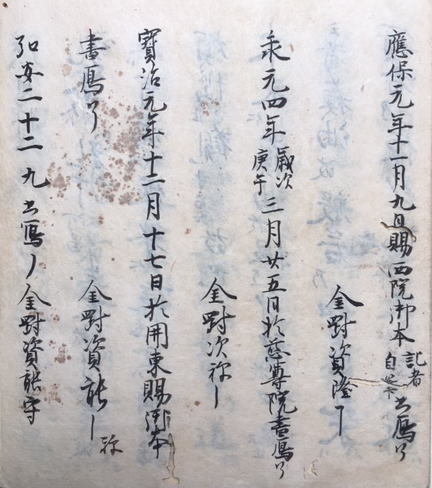 應保元年十一月九日賜西院御本記者自筆書寫了
金對資隆｜
承元四年歲次庚午三月廿五日於慈尊院書寫了
金對次祢｜
寶治元年十二月十七日於開東賜御本
書寫了 金對資能｜祢
弘安二十二九書寫了 金對資能守